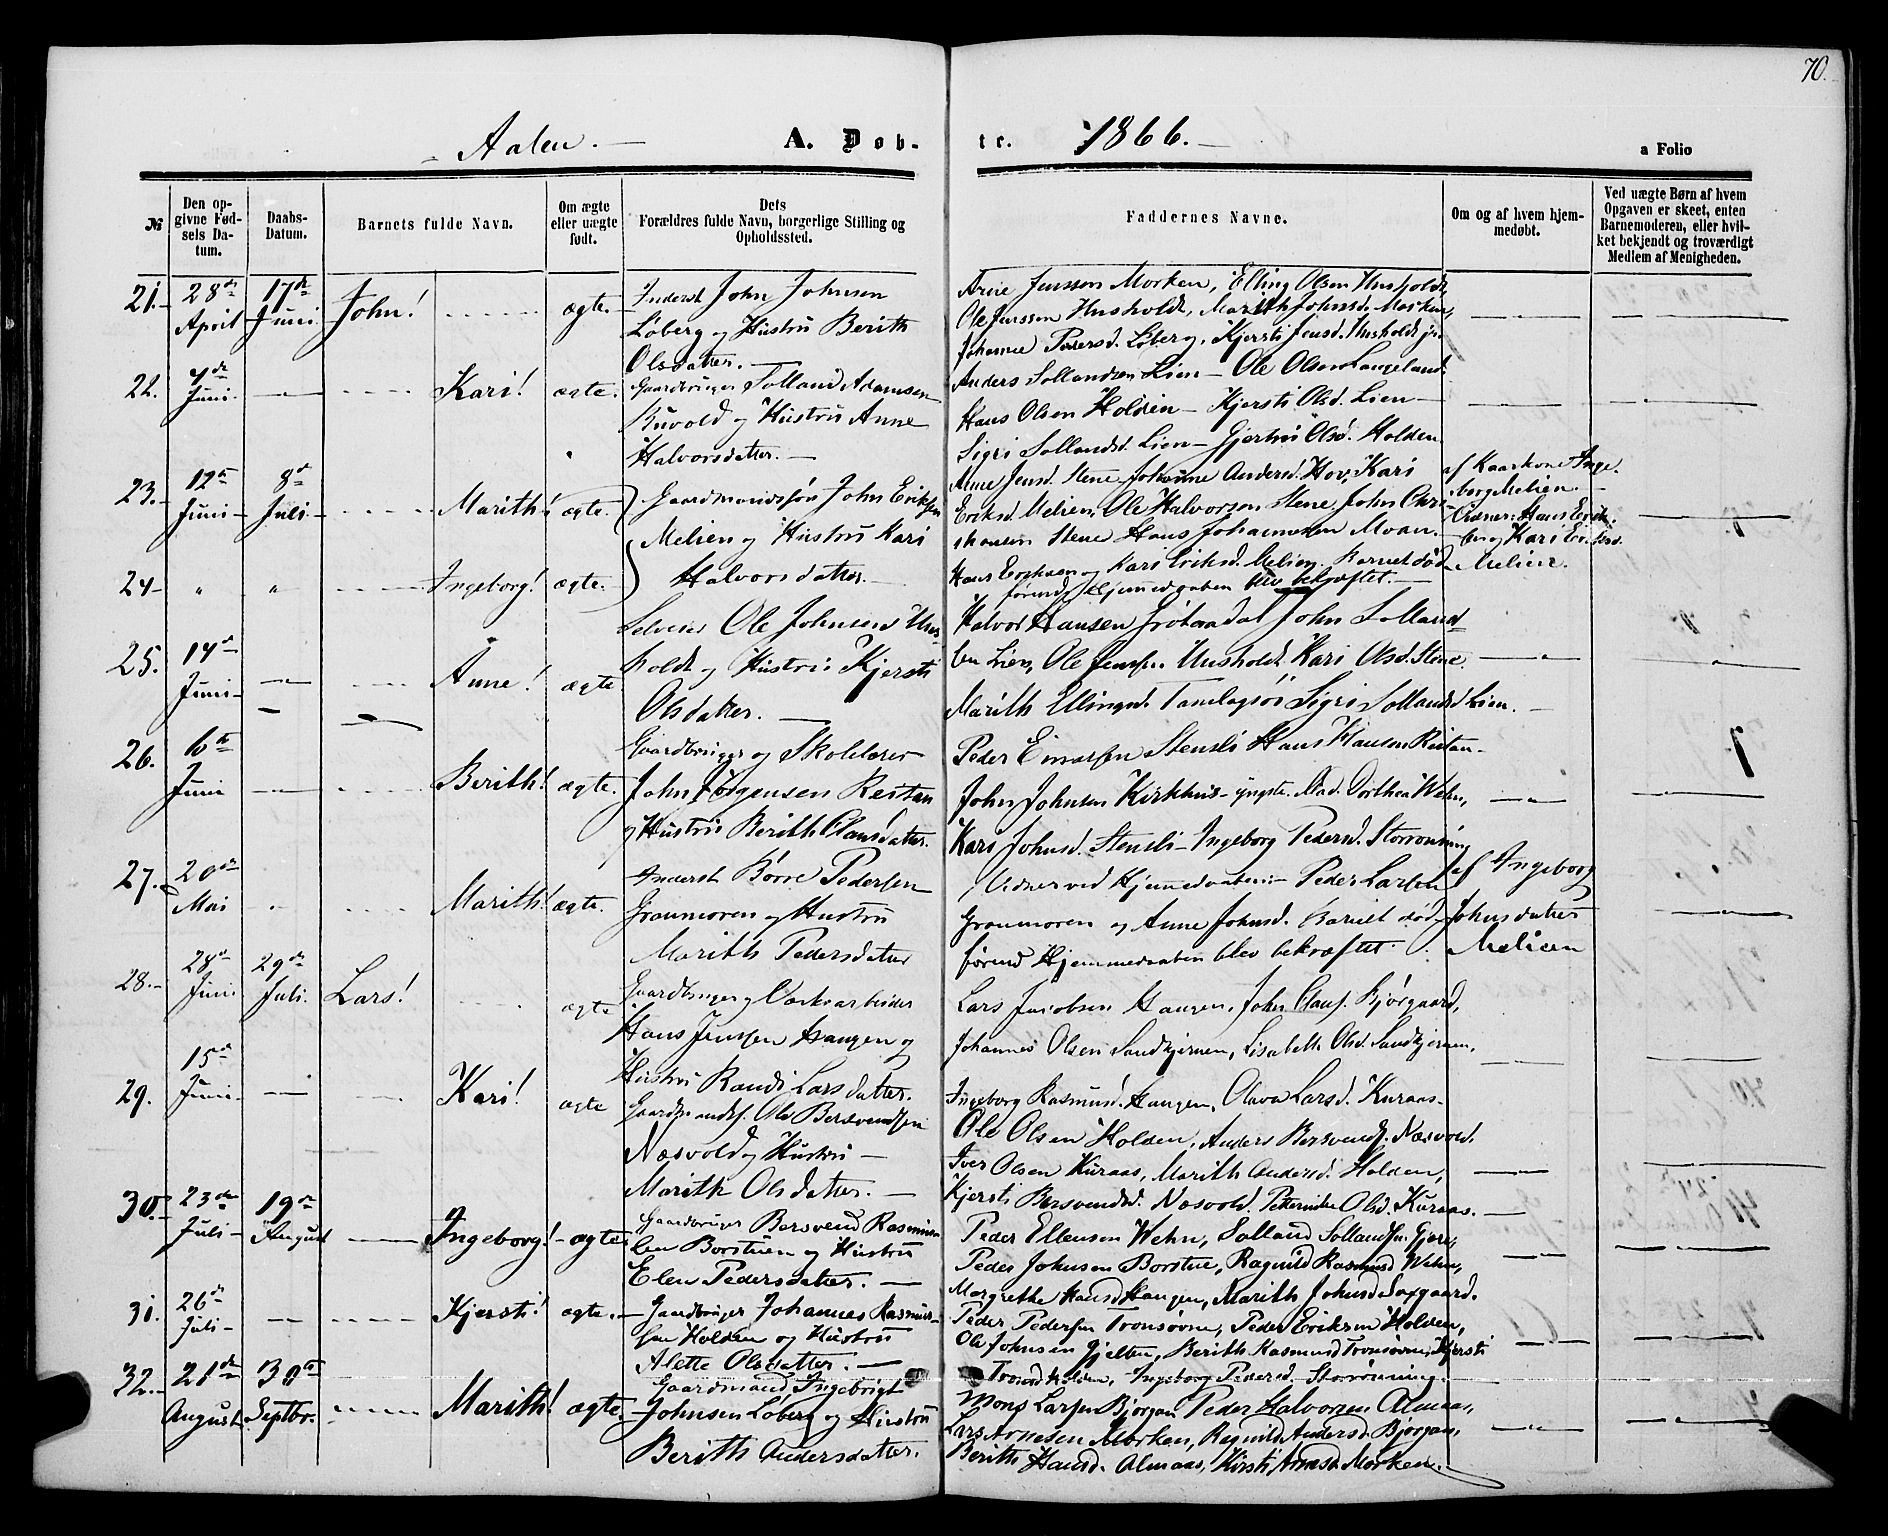 70.
Aalen.
A. Døb-
te.
1866.
a Folio
№
Den op-
givne Fød-
sels Da-
tum.
Daabs-
Datum.
Barnets fulde Navn.
Om ægte
eller uægte
født.
Dets
Forældres fulde Navn, borgerlige Stilling og
Opholdssted.
Faddernes Navne.
Om og af hvem hjem-
medøbt.
Ved uægte Børn af hvem
Opgaven er skeet, enten
Barnemoderen, eller hvil-
ket bekjendt og troværdigt
Medlem af Menigheden.
21. 28de April 17de Juni John! ægte.
Inderst John Johnsen
Løberg og Hustru Berith
Olsdatter.
Arne Jensson Morken, Elling Olsen Husholdt,
Ole Jensson Husholdt, Marith Johnsd. Morken,
Johanne Pedersd. Løberg, Kjersti Jensd. Husholdt
22. Juni Kari! ægte.
Gaardbruger Solland Adamsen
Buvold og Hustru Anne
Halvorsdatter.
Anders Sollandsen Lien - Ole Olsen Langeland
Hans Olsen Holden - Kjersti Olsd. Lien
Sigri Sollandsd. Lien - Gjertru Olsd. Holden
23. 12te Juni 8de Juli Marith! ægte.
Gaardmandssøn John Eriksen
Melien og Hustru Kari
Halvorsdatter.
Anne Jensd. Stene Johanne Andersd. Hov, Kari
Eriksd. Melien, Ole Halvorsen Stene, John Chri-
stensen Stene Hans Johannesen Moan.
af Kaarkone Inge-
borg Melien.
Vidner: Hans Erik-
sen og Kari Eriksd.
Melien.
24 " " Ingeborg! ægte.
Hans Eriksen og Kari Eriksd. Melien, Barnet død
førend Hjemmedaaben blev bekræftet.
25. 14de Juni Anne! ægte
Selveier Ole Johnsen Hus-
holdt og Hustru Kjersti
Olsdatter.
Halvor Hansen Grøtaadal John Solland-
sen Lien, Ole Jensen Husholdt Kari Olsd. Stene
Marith Ellingsd. Sigri Sollandsd Lien.
26. 6te Juni Berith! ægte.
Gaardbruger og Skolelærer
John Jørgensen Reitan
og Hustru Berith Clausdatter.
Peder Einarsen Stensli Hans Hansen Reitan
John Johnsen Kirkhus - yngste. Mad. Dorthea Wehn,
Kari Johnsd. Stensli - Ingeborg Pedersd. Storrønning
27. 20de Mai Marith! ægte.
Inderst Børre Pedersen
Graumoren og Hustru
Marith Pedersdatter
Vidner ved Hjemmedaaben: Peder Larsen
Graumoren og Anne Johnsd. Barnet død
førend Hjemmedaaben blev bekræftet.
af Ingeborg
Johnsdatter
Melien
28. 28de Juni 29de Juli. Lars! ægte
Gaardbruger og Værksarbeider
Hans Jensen Haugen og
Hustru Randi Larsdatter.
Lars Jacobsen Haugen, John Clausen Bjørgaard,
Johannes Olsen Sandkjernen, Lisabeth Olsd. Sandkjernen,
Ingeborg Rasmusd. Haugen, Olava Larsd. Kuraas.
29. 15de Juni Kari! ægte
Gaardmands. Ole Bersvendsen
Næsvold og Hustru
Marith Olsdatter.
Ole Olsen Holden, Anders Bersvends. Næsvold.
Iver Olsen Kuraas, Marith Andersd. Holden,
Kjersti Bersvendsd. Næsvold. Petternille Olsd. Kuraas.
30. 23de Juli 19de August Ingeborg! ægte.
Gaardbruger Bersvend Rasmus-
sen Borstuen og Hustru
Elen Pedersdatter.
Peder Ellensen Wehn, Solland Sollandsen Gjære,
Peder Johnsen Borstue, Ragnild Rasmusd Wehn,
Margrethe Hansd Haugen, Marith Johnsd Saxgaard.
31. 26de Juli Kjersti! ægte.
Gaardbruger Johannes Rasmus-
sen Holden og Hustru
Alette Olsdatter.
Peder Pedersen Tronsovne, Peder Eriksen Holden,
Ole Johnsen Gjelten, Berith Rasmusd Tronsovne, Kjersti
Tronsd Holden, Ingeborg Pedersd. Storrønning.
32. 21de August 30te Septbr. Marith! ægte
Gaardmand Ingebrigt
Johnsen Løberg og Hustru
Berith Andersdatter.
Mons Larsen Bjørgan Peder Halvorsen Almaas,
Lars Arnesen Morken, Ragnild Andersd. Bjørgan,
Berith Hansd. Almaas, Kirsti Arnesd. Morken.